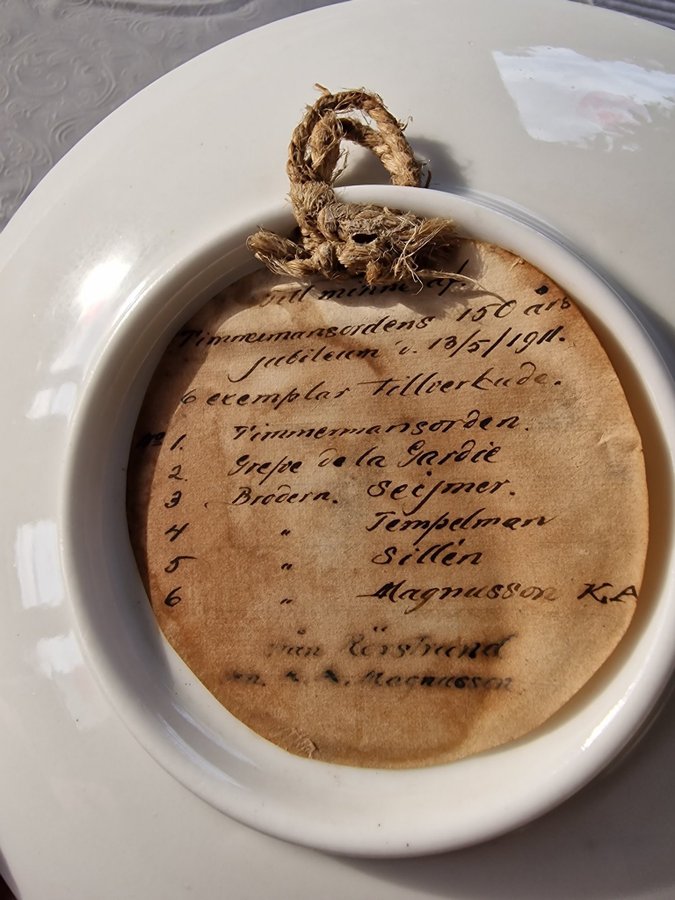 Till minne af.
Timmermansordens 150 års
jubileum d. 13/5/1911.
6 exemplar tillverkade.
No 1. Timmermansorden.
2. Grefve de la Gardie
3 Brodern. Seijmer.
4 " Tempelman
5 " Sillén
6 " Magnusson K.A
från Rörstrand
K. A. Magnusson